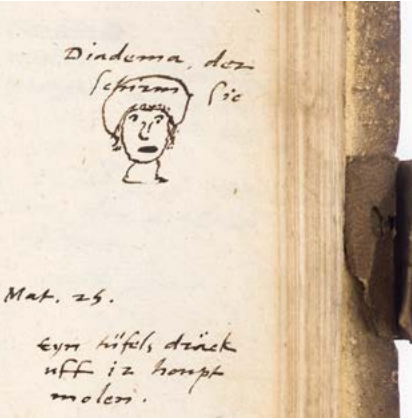 Diadema, der
schirm, sic
Mat. 25.
Eyn tüfels dräck
uff ir houpt
molen.